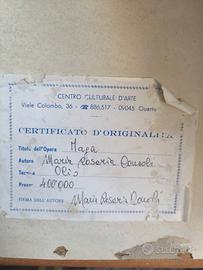 CENTRO CULTURALE D'ARTE
Viale Colombo, 36 - ☎ 886.517 - 09045 Quartu
CERTIFICATO D'ORIGINALITA
Titolo dell'Opera Maga
Autore Maria Rosaria
Tecnica Olio
Prezzo 400000
FIRMA DELL'AUTORE Maria Rosaria